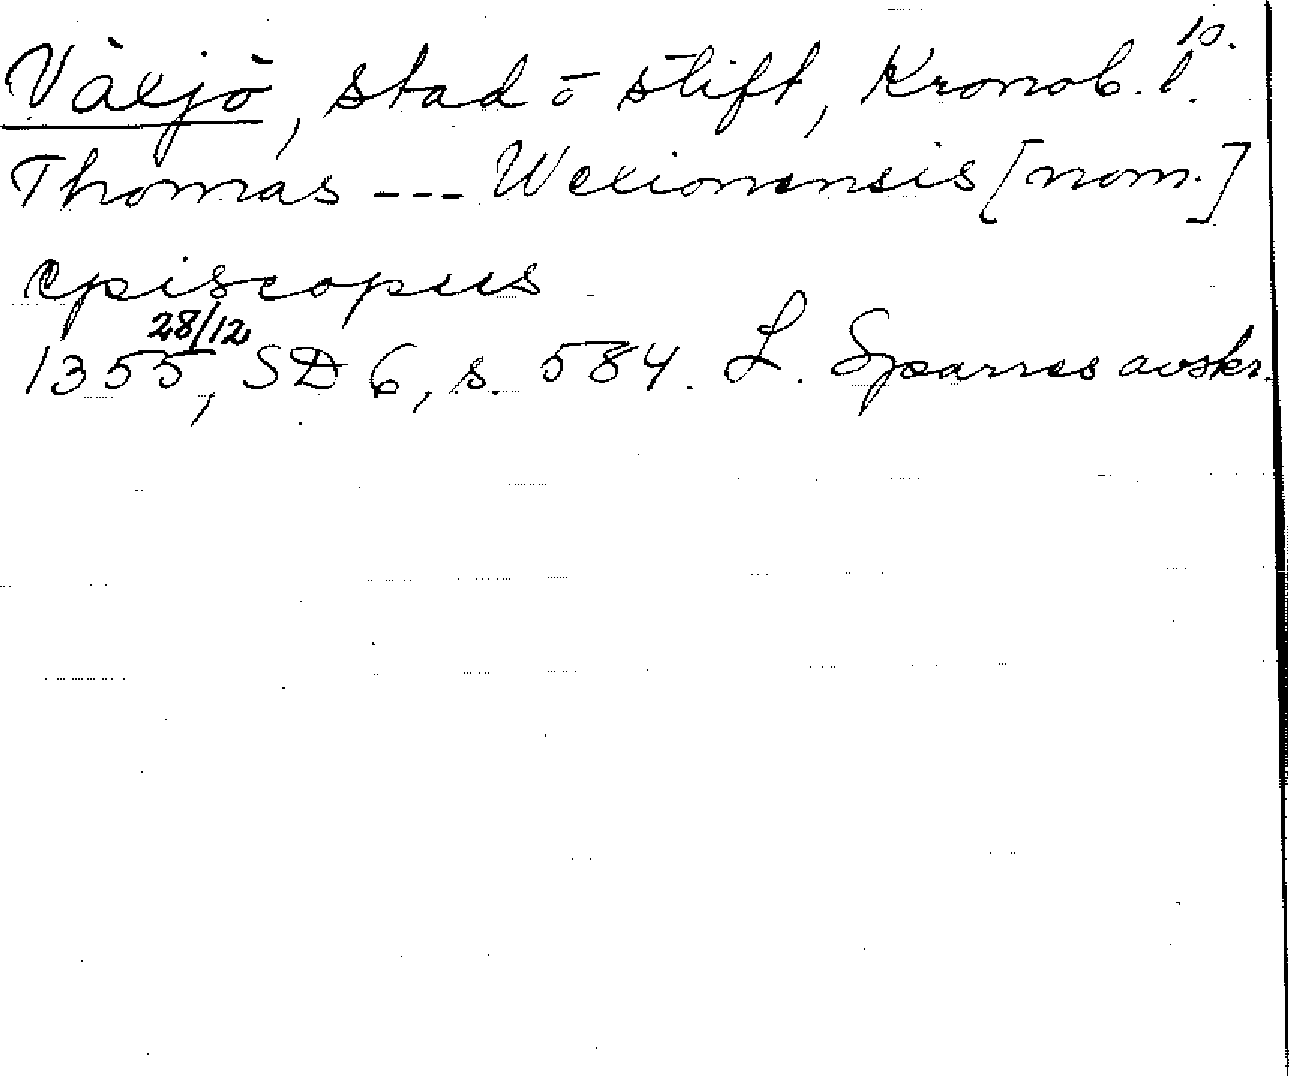 10.
Växjö, stad o stift, Kronob. l.
Thomas --- Wexionensis [nom.]
episcopus
1355 28/12, SD 6, s. 584. L. Sparres avskr.